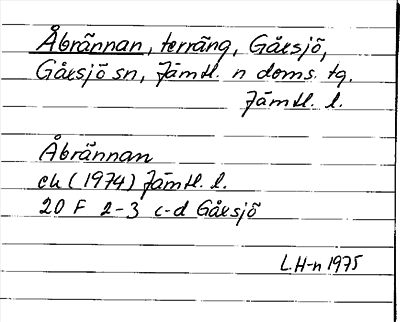 Åbrännan, terräng, Gåxsjö,
Gåxsjö sn, Jämtl. n doms. tg.
Jämtl. l.
Åbrännan
ek (1974) Jämtl. l.
20 F 2-3 c-d Gåxsjö
L. H-n 1975